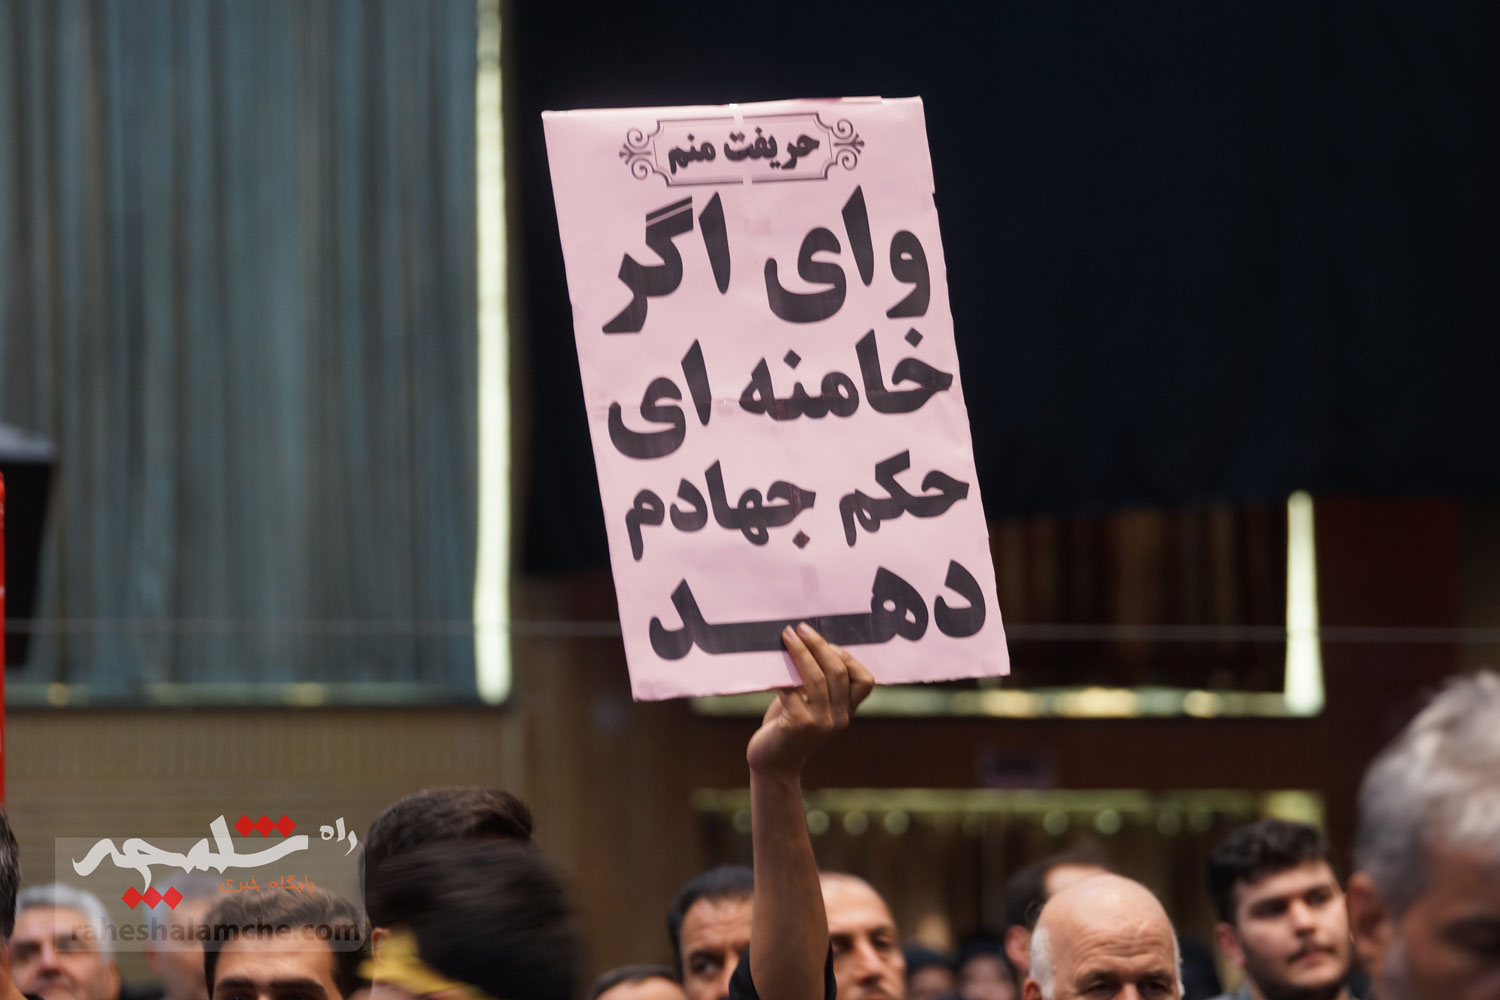 حریفت منم
وای اگر
خامنه ای
حکم جهادم
دهـــد
راه شلمچه
پایگاه خبری
raheshalamche.com